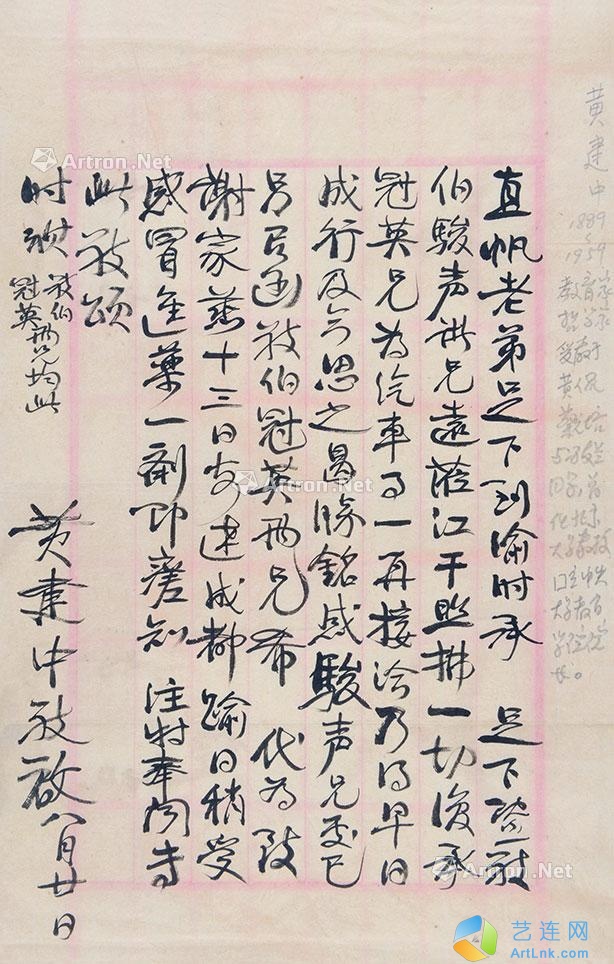 直帆老弟足下到渝时承　足下暨敬
伯骏声诸兄远莅江干照拂一切后承
冠英兄为汽车事一再接洽乃得早日
成行及今思之曷胜铭感骏声兄处已
另函敬伯冠英两兄希　代为致
谢家慈十三日安达成都踰日稍受
感冒进药一剂即瘥知　注特奉闻专
此敬颂
时祺 敬伯
冠英两兄均此
黄建中敬启八月廿日
黄建中
1889
1959
教育家
哲学家
大学教授
Artron.Net
Artron.Net
Artron.Net
Artron.Net
Artron.Net
Artron.Net
艺连网
ArtLnk.com